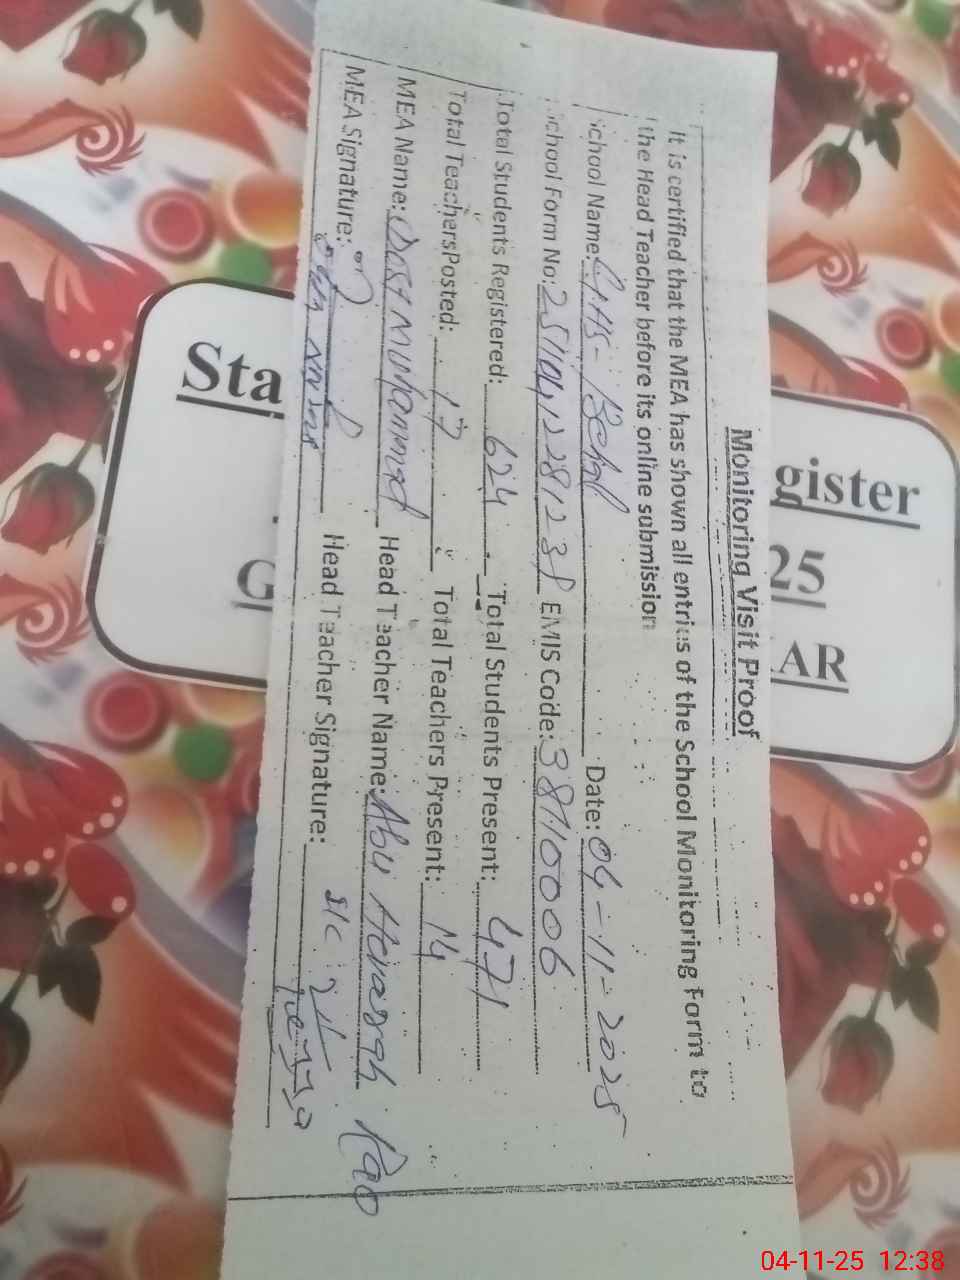 Monitoring Visit Proof
It is certified that the MEA has shown all entries of the School Monitoring Form to
the Head Teacher before its online submission
School Name: GHS- Behal Date: 04-11-2025
School Form No: EMIS Code: 38110006
Total Students Registered: 624 Total Students Present: 471
Total Teachers Posted: 17 Total Teachers Present: 14
MEA Name: Dost Muhammad Head Teacher Name: Abu Rao
MEA Signature: Head Teacher Signature:
Sta
gister
25
G
AR
04-11-25 12:38